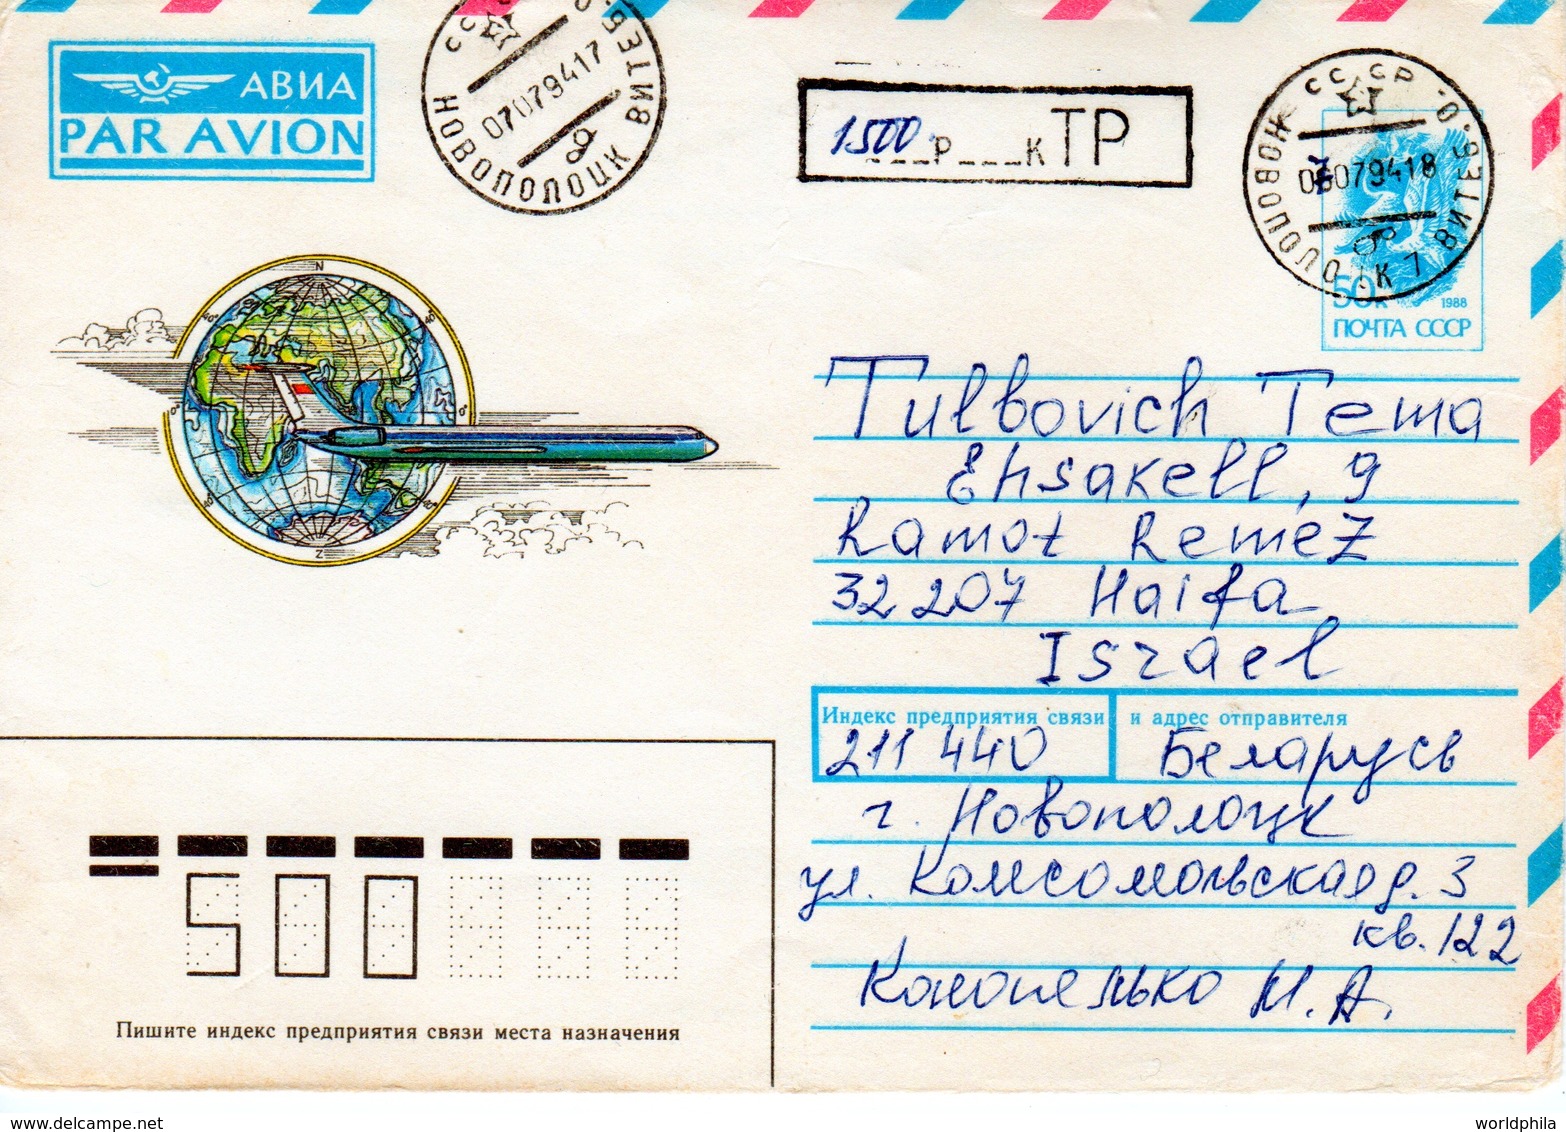 АВИА
PAR AVION
НОВОПОЛОЦК ВИТЕБ.О
07079417
1500 Р К ТР
СССР
НОВОПОЛОЦК 7 ВИТЕБ.О
079418
50к 1988
ПОЧТА СССР
N
Z
Tulbovich Tema
Ehsakell, 9
Ramot Remez
32 207 Haifa
Israel
Индекс предприятия связи и адрес отправителя
211 440 Беларусь
г. Новополоцк
ул. Комсомольская д. 3
кв. 122
Конопелько М. А.
500
Пишите индекс предприятия связи места назначения
www.delcampe.net
worldphila